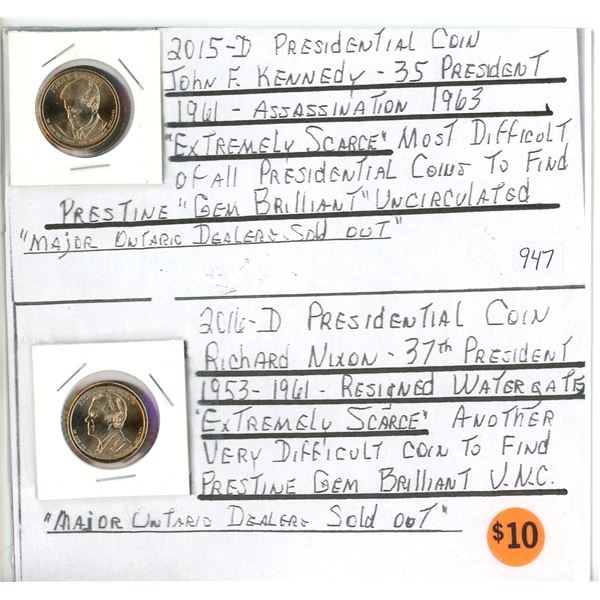 2015-D PRESIDENTIAL COIN
JOHN F. KENNEDY - 35 PRESIDENT
1961 - ASSASSINATION 1963
"EXTREMELY SCARCE" MOST DIFFICULT
OF ALL PRESIDENTIAL COINS TO FIND
PRESTINE "GEM BRILLIANT" UNCIRCULATED
"MAJOR ONTARIO DEALERS SOLD OUT"
947
2016-D PRESIDENTIAL COIN
RICHARD NIXON - 37th PRESIDENT
1953-1961 - RESIGNED WATERGATE
"EXTREMELY SCARCE" ANOTHER
VERY DIFFICULT COIN TO FIND
PRESTINE GEM BRILLIANT U.N.C.
"MAJOR ONTARIO DEALERS SOLD OUT"
$10